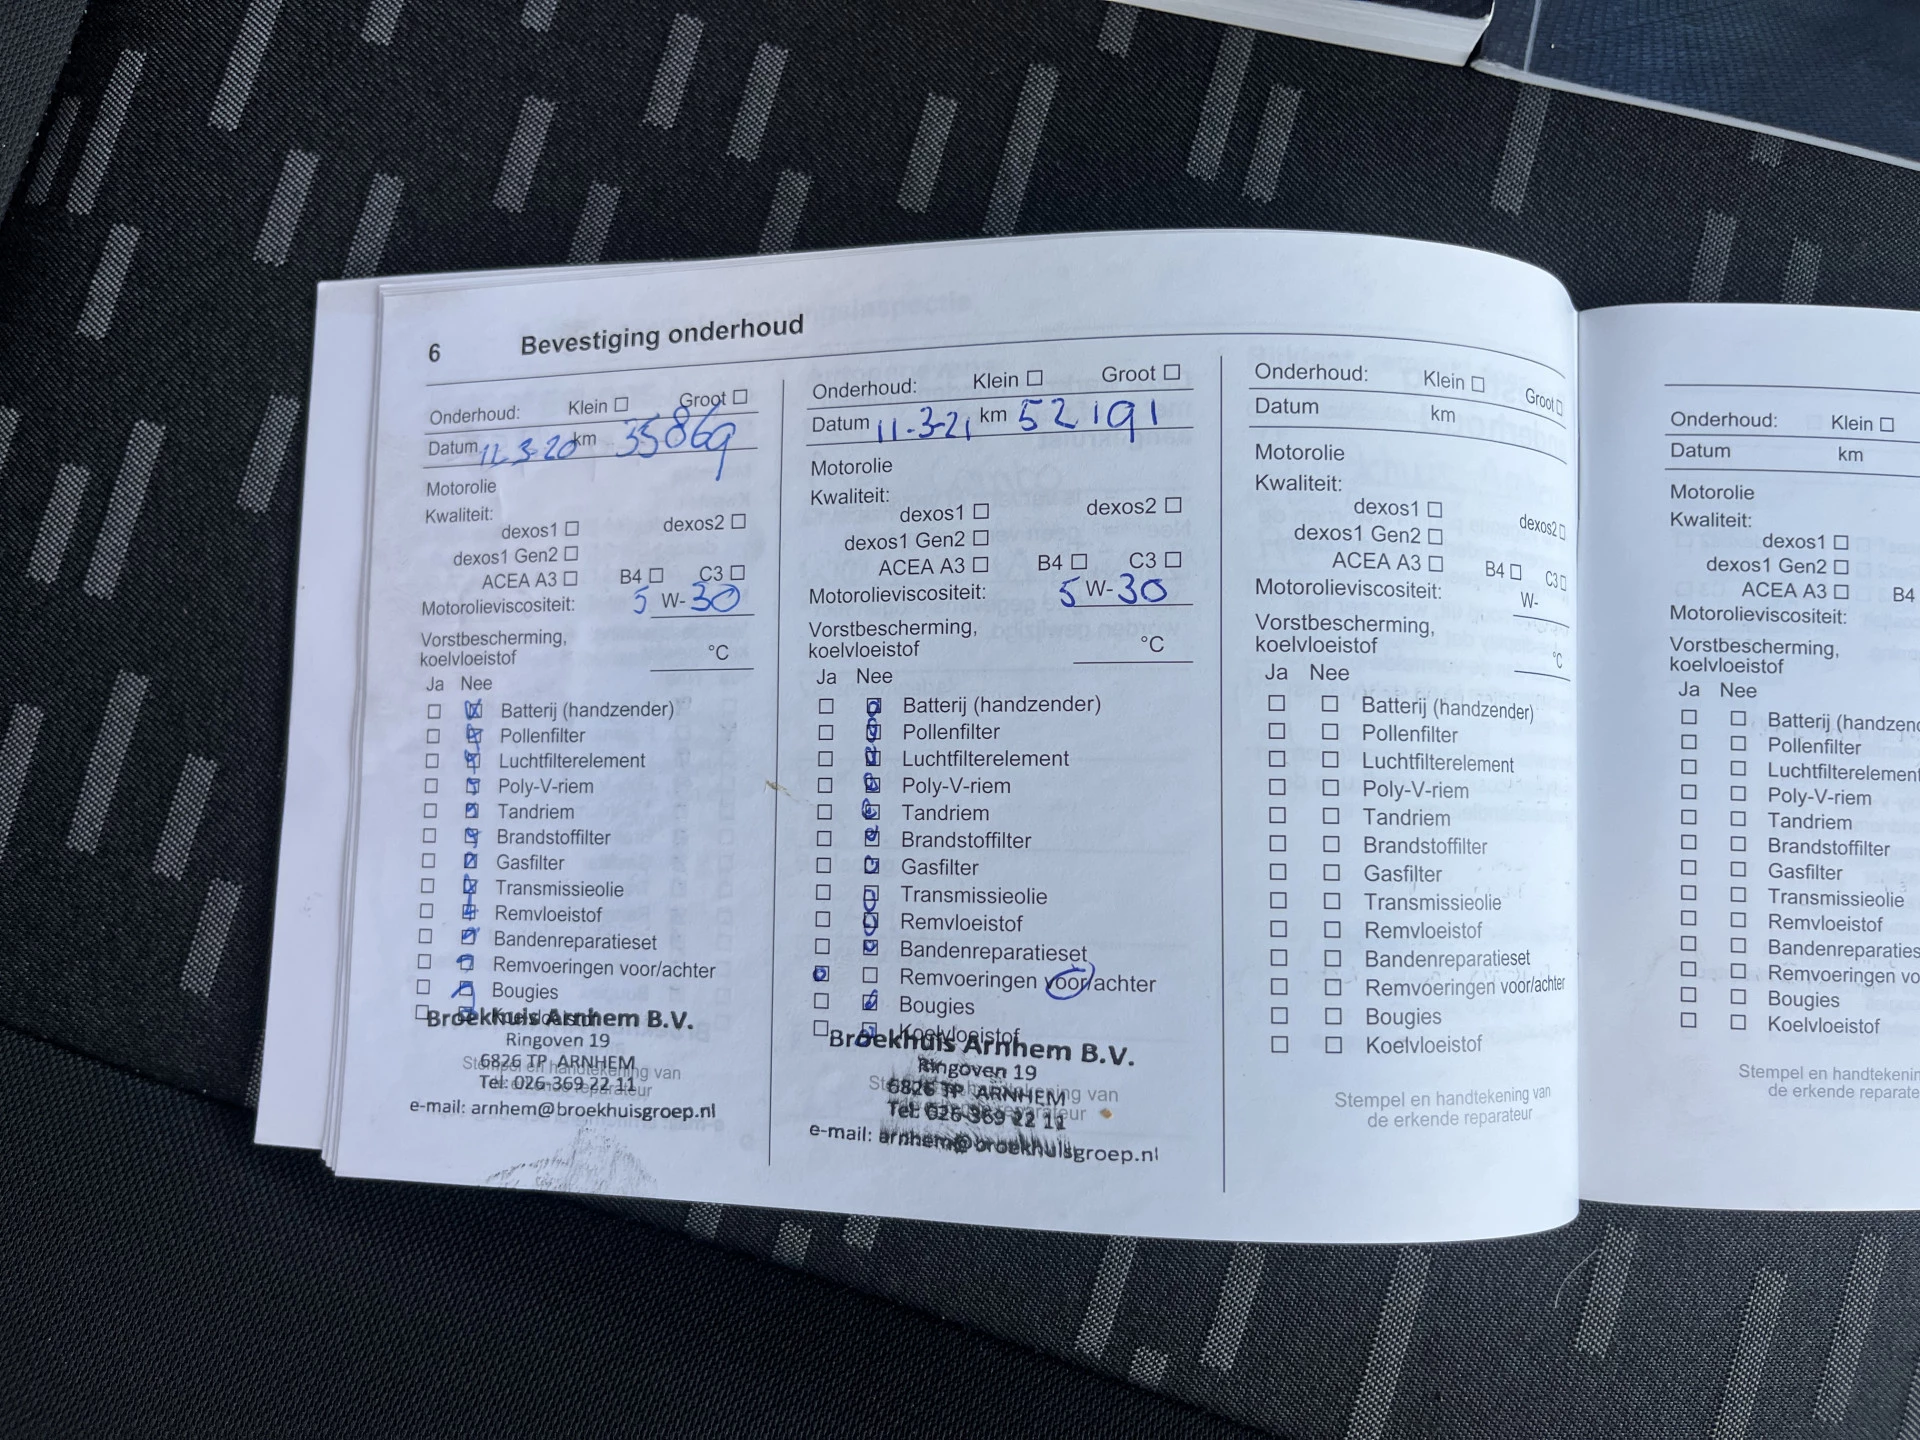 6 Bevestiging onderhoud
Onderhoud: Klein ☐ Groot ☐
Datum 11-3-20 km 35869
Motorolie
Kwaliteit:
dexos1 ☐ dexos2 ☐
dexos1 Gen2 ☐
ACEA A3 ☐ B4 ☐ C3 ☐
Motorolieviscositeit: 5 W-30
Vorstbescherming,
koelvloeistof °C
Ja Nee
☐ ☒ Batterij (handzender)
☐ ☒ Pollenfilter
☐ ☒ Luchtfilterelement
☐ ☒ Poly-V-riem
☐ ☒ Tandriem
☐ ☒ Brandstoffilter
☐ ☒ Gasfilter
☐ ☒ Transmissieolie
☐ ☒ Remvloeistof
☐ ☒ Bandenreparatieset
☐ ☒ Remvoeringen voor/achter
☐ ☒ Bougies
☐ ☒ Koelvloeistof
Broekhuis Arnhem B.V.
Ringoven 19
6826 TP ARNHEM
Stempel en handtekening van
Tel: 026-369 22 11
de erkende reparateur
e-mail: arnhem@broekhuisgroep.nl
Onderhoud: Klein ☐ Groot ☐
Datum 11-3-21 km 52191
Motorolie
Kwaliteit:
dexos1 ☐ dexos2 ☐
dexos1 Gen2 ☐
ACEA A3 ☐ B4 ☐ C3 ☐
Motorolieviscositeit: 5 W-30
Vorstbescherming,
koelvloeistof °C
Ja Nee
☐ ☒ Batterij (handzender)
☐ ☒ Pollenfilter
☐ ☒ Luchtfilterelement
☐ ☒ Poly-V-riem
☐ ☒ Tandriem
☐ ☒ Brandstoffilter
☐ ☒ Gasfilter
☐ ☒ Transmissieolie
☐ ☒ Remvloeistof
☐ ☒ Bandenreparatieset
☒ ☐ Remvoeringen voor/achter
☐ ☒ Bougies
☐ ☒ Koelvloeistof
Broekhuis Arnhem B.V.
Ringoven 19
6826 TP ARNHEM
Stempel en handtekening van
Tel: 026-369 22 11
de erkende reparateur
e-mail: arnhem@broekhuisgroep.nl
Onderhoud: Klein ☐ Groot ☐
Datum km
Motorolie
Kwaliteit:
dexos1 ☐ dexos2 ☐
dexos1 Gen2 ☐
ACEA A3 ☐ B4 ☐ C3 ☐
Motorolieviscositeit: W-
Vorstbescherming,
koelvloeistof °C
Ja Nee
☐ ☐ Batterij (handzender)
☐ ☐ Pollenfilter
☐ ☐ Luchtfilterelement
☐ ☐ Poly-V-riem
☐ ☐ Tandriem
☐ ☐ Brandstoffilter
☐ ☐ Gasfilter
☐ ☐ Transmissieolie
☐ ☐ Remvloeistof
☐ ☐ Bandenreparatieset
☐ ☐ Remvoeringen voor/achter
☐ ☐ Bougies
☐ ☐ Koelvloeistof
Stempel en handtekening van
de erkende reparateur
Onderhoud: Klein ☐
Datum km
Motorolie
Kwaliteit:
dexos1 ☐
dexos1 Gen2 ☐
ACEA A3 ☐ B4
Motorolieviscositeit:
Vorstbescherming,
koelvloeistof
Ja Nee
☐ ☐ Batterij (handzend
☐ ☐ Pollenfilter
☐ ☐ Luchtfilterelement
☐ ☐ Poly-V-riem
☐ ☐ Tandriem
☐ ☐ Brandstoffilter
☐ ☐ Gasfilter
☐ ☐ Transmissieolie
☐ ☐ Remvloeistof
☐ ☐ Bandenreparaties
☐ ☐ Remvoeringen vo
☐ ☐ Bougies
☐ ☐ Koelvloeistof
Stempel en handtekenin
de erkende reparate